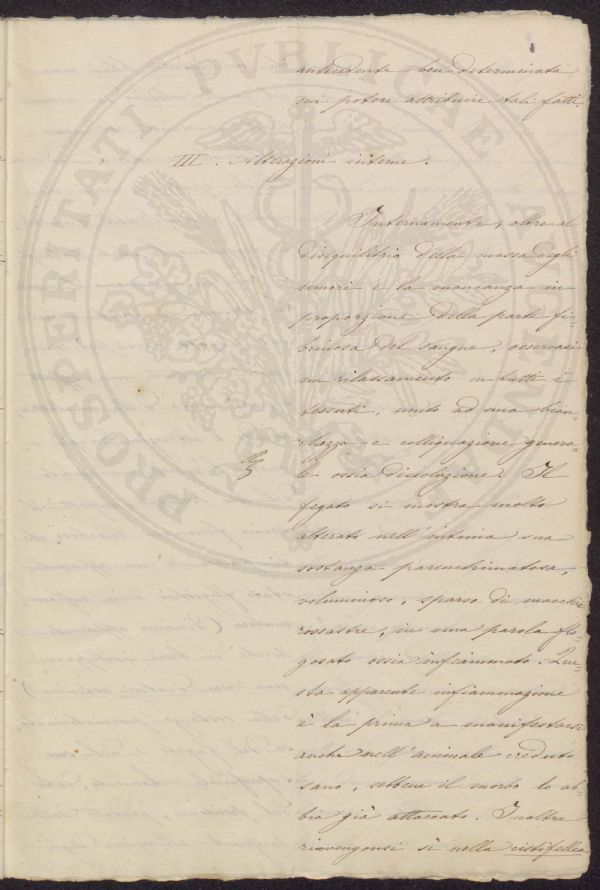 antecedente ben determinata
cui potere attribuire tali fatti.
III. Alterazioni interne.
Internamente, oltre al
disequilibrio della massa degli
umori e la mancanza in
proporzione della parte fi-
brinosa del sangue, osservasi
un rilassamento in tutti i
tessuti, unito ad una bian-
chezza e colliquazione genera-
le ossia dissoluzione. Il
fegato si mostra molto
alterato nell'intima sua
sostanza parenchimatosa,
voluminoso, sparso di macchie
rossastre, in una parola flo-
gosato ossia infiammato. Que-
sta apparente infiammazione
è la prima a manifestarsi
anche nell'animale creduto
sano, sebbene il morbo lo ab-
bia già attaccato. Inoltre
rinvengonsi sì nella cistifellea
PROSPERITATI PVBLICAE